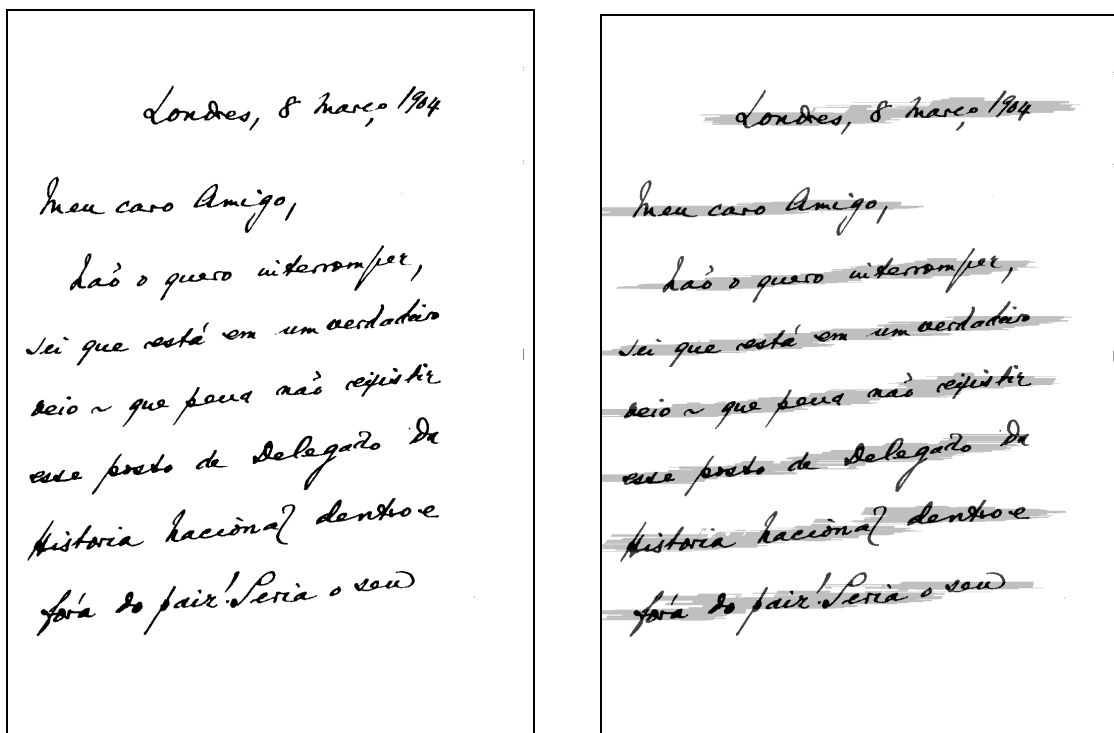 Londres, 8 Março 1904
Meu caro Amigo,
Naõ o quero interromper,
sei que está em um verdadeiro
veio ~ que pena naõ existir
esse posto de Delegado Da
Historia Nacional dentro e
fóra do paiz! Seria o seu
Londres, 8 Março 1904
Meu caro Amigo,
Naõ o quero interromper,
sei que está em um verdadeiro
veio ~ que pena naõ existir
esse posto de Delegado Da
Historia Nacional dentro e
fóra do paiz! Seria o seu